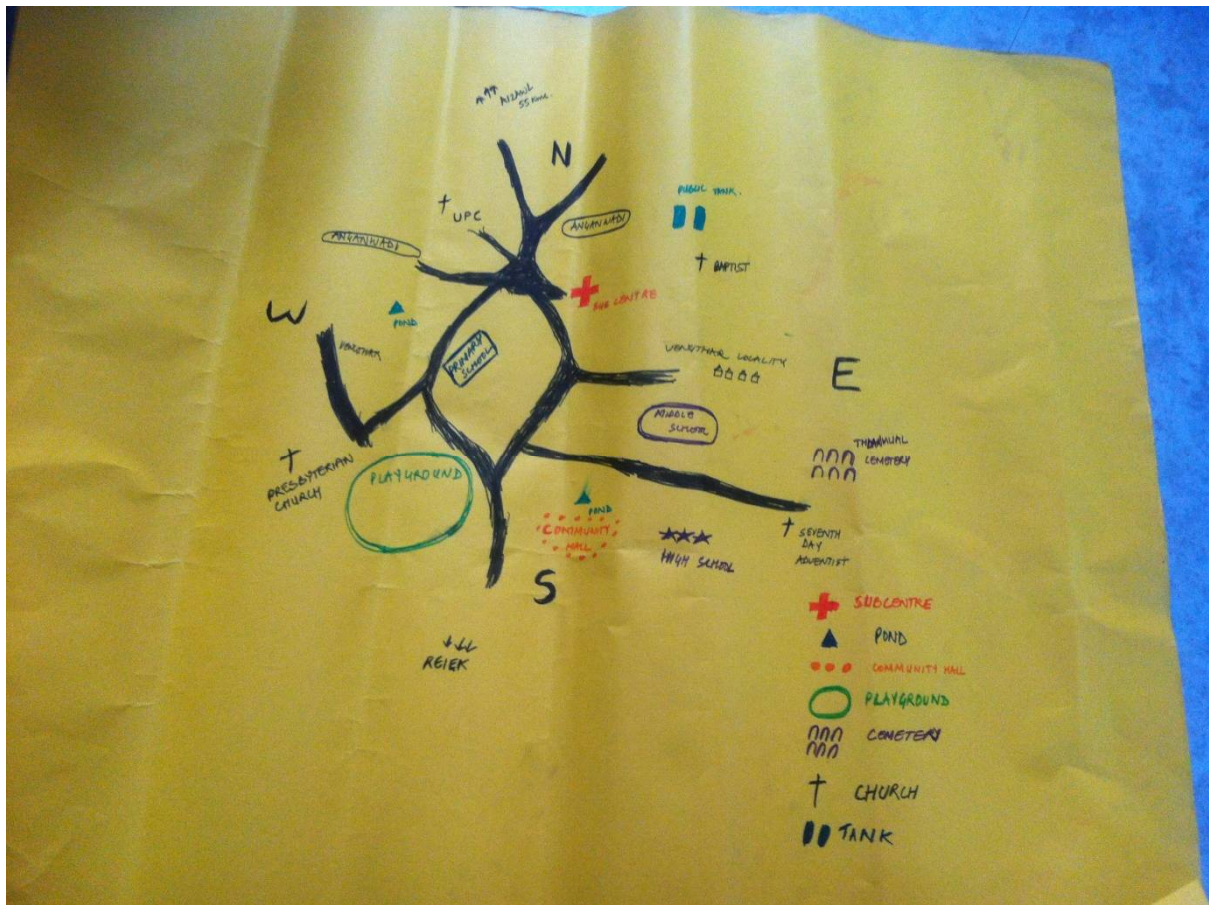 ↑↑↑ AIZAWL
55 Kms.
N
PUBLIC TANK.
† UPC
ANGANWADI
ANGANWADI
† BAPTIST
SUB CENTRE
W
POND
VENGTHAR LOCALITY
E
PRIMARY
SCHOOL
MIDDLE
SCHOOL
CEMETERY
†
PRESBYTERIAN
CHURCH
PLAYGROUND
POND
COMMUNITY
HALL
HIGH SCHOOL
† SEVENTH
DAY
ADVENTIST
S
↓↓↓
REIEK
SUBCENTRE
POND
COMMUNITY HALL
PLAYGROUND
CEMETERY
† CHURCH
TANK